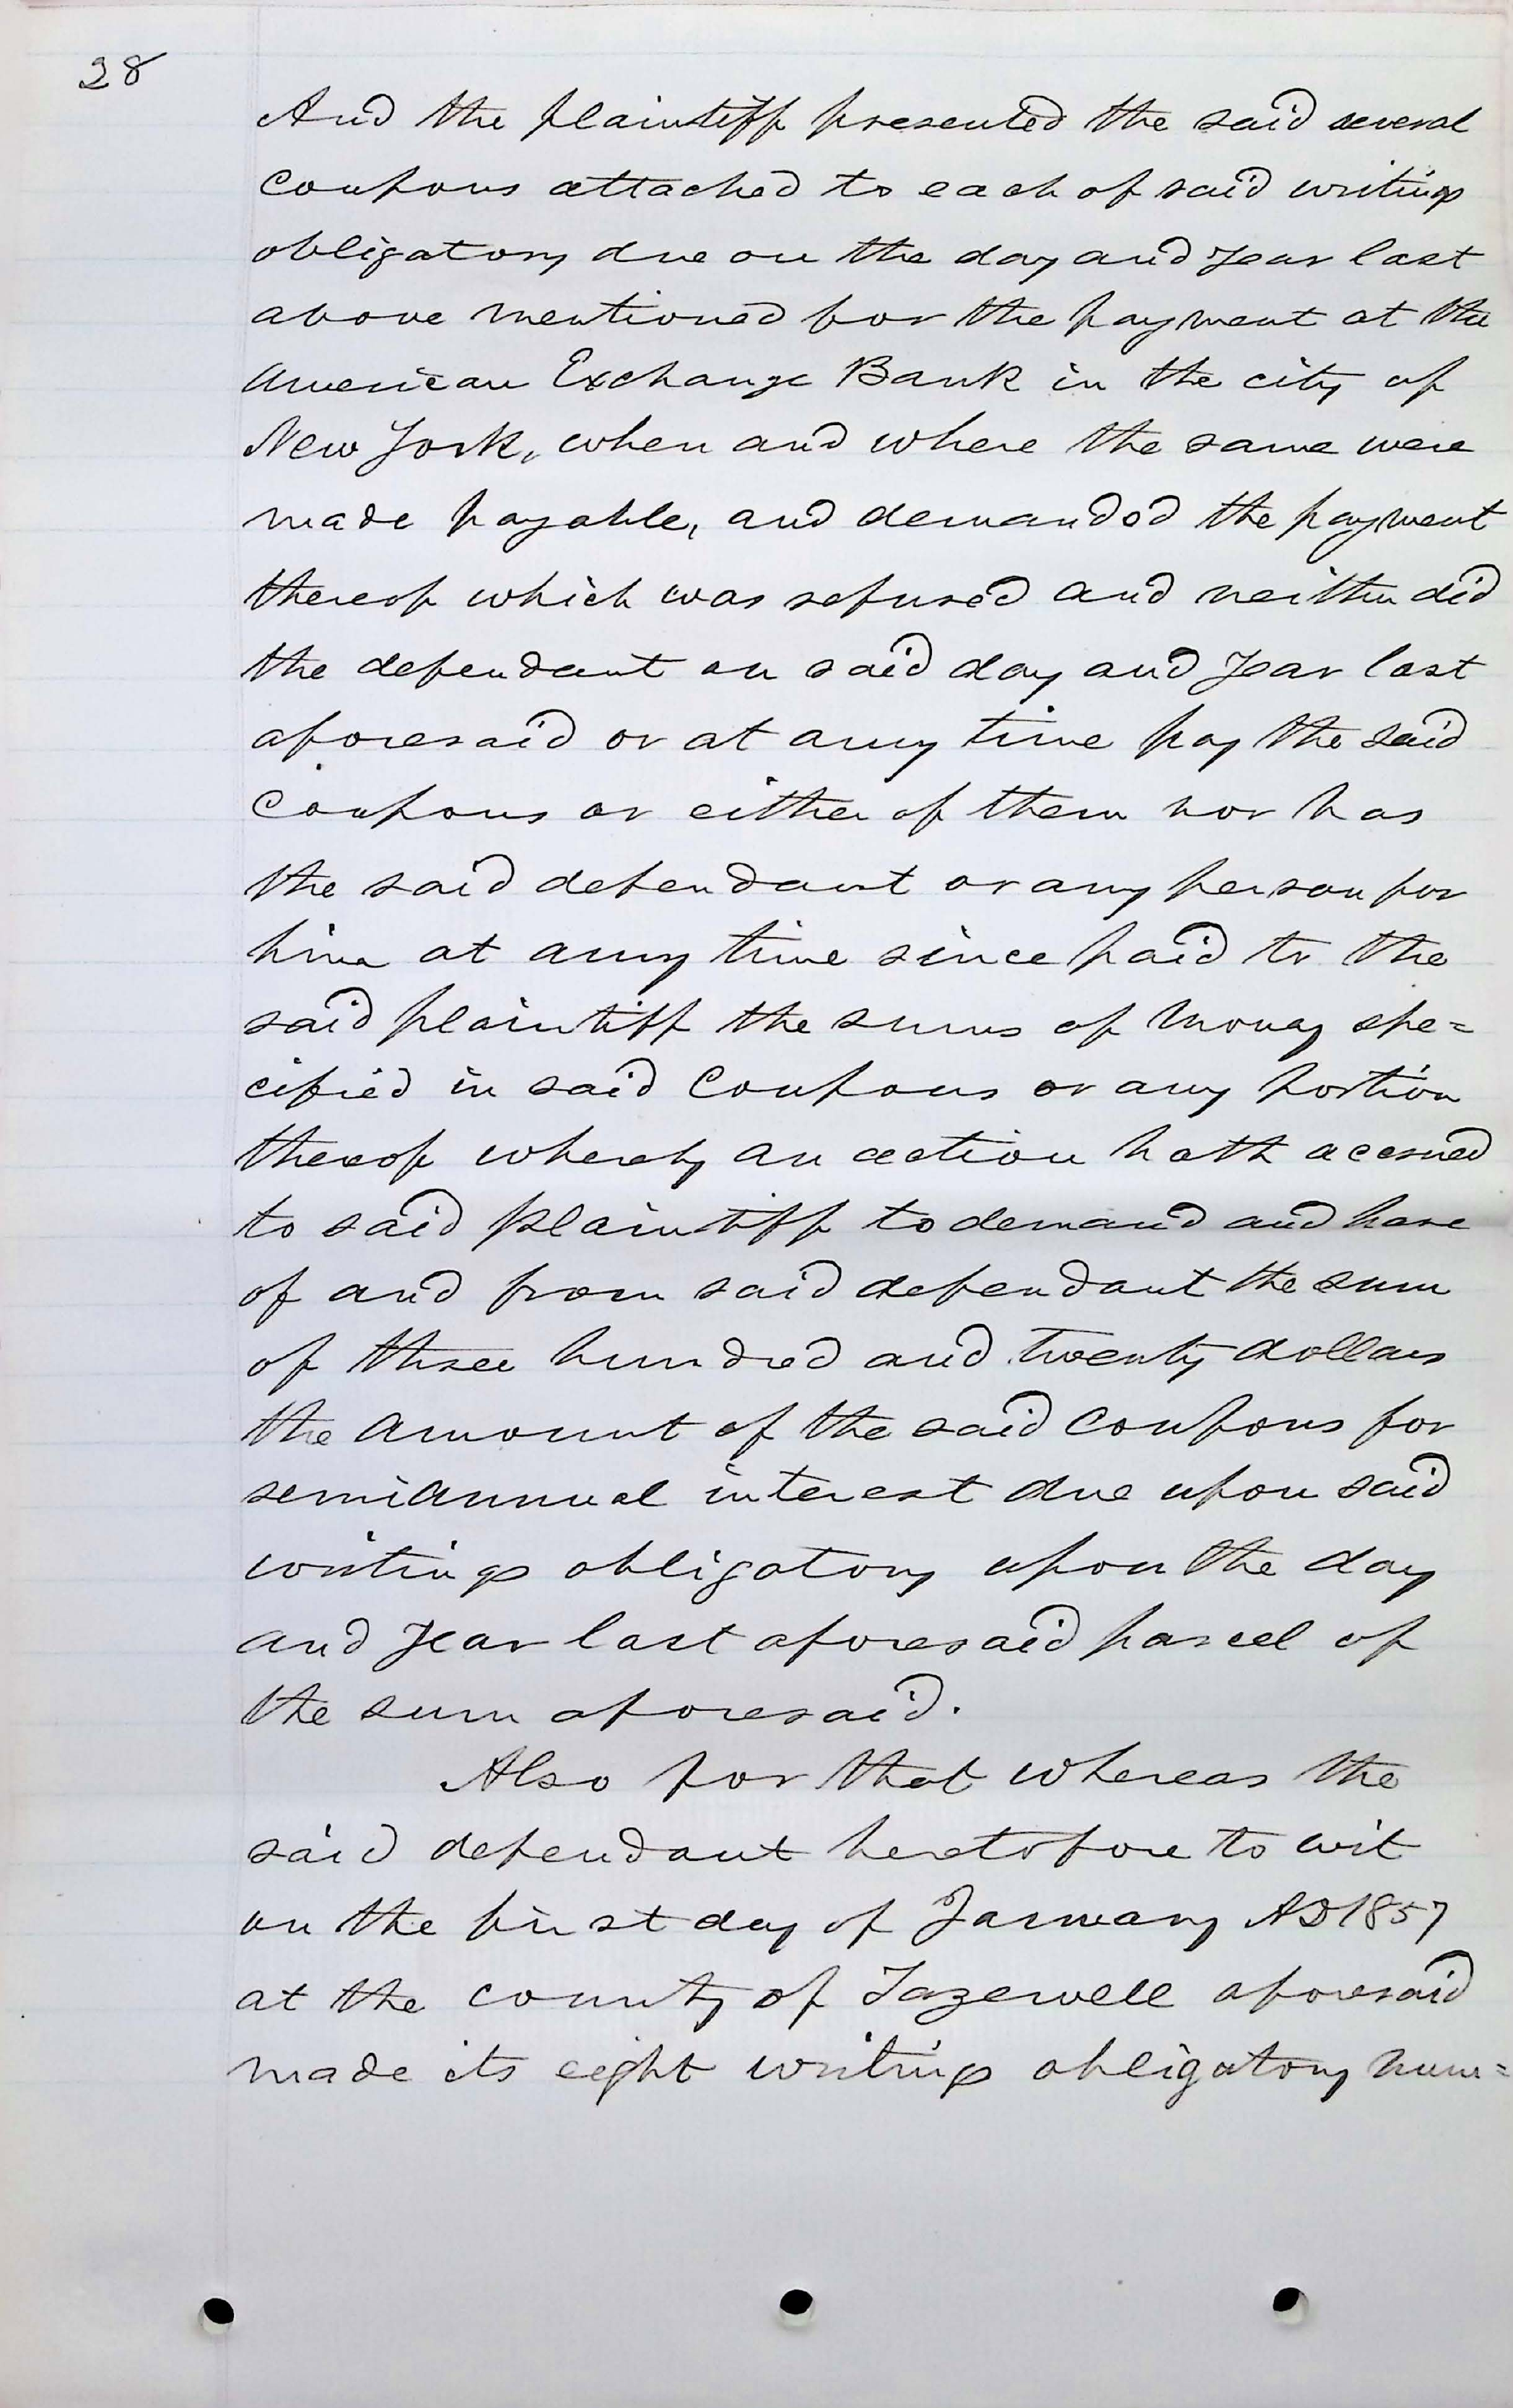 28
And the plaintiff presented the said several
coupons attached to each of said writings
obligatory due on the day and year last
above mentioned for the payment at the
American Exchange Bank in the city of
New York, when and where the same were
made payable, and demanded the payment
thereof which was refused and neither did
the defendant on said day and year last
aforesaid or at any time pay the said
Coupons or either of them nor has
the said defendant or any person for
him at any time since paid to the
said plaintiff the sums of money spe=
cified in said Coupons or any portion
thereof whereby an action hath accrued
to said plaintiff to demand and have
of and from said defendant the sum
of three hundred and twenty dollars
the amount of the said Coupons for
semiannual interest due upon said
writings obligatory upon the day
and year last aforesaid parcel of
the sum aforesaid.
Also for that whereas the
said defendant heretofore to wit
on the first day of January AD 1857
at the county of Tazewell aforesaid
made its eight writings obligatory num=